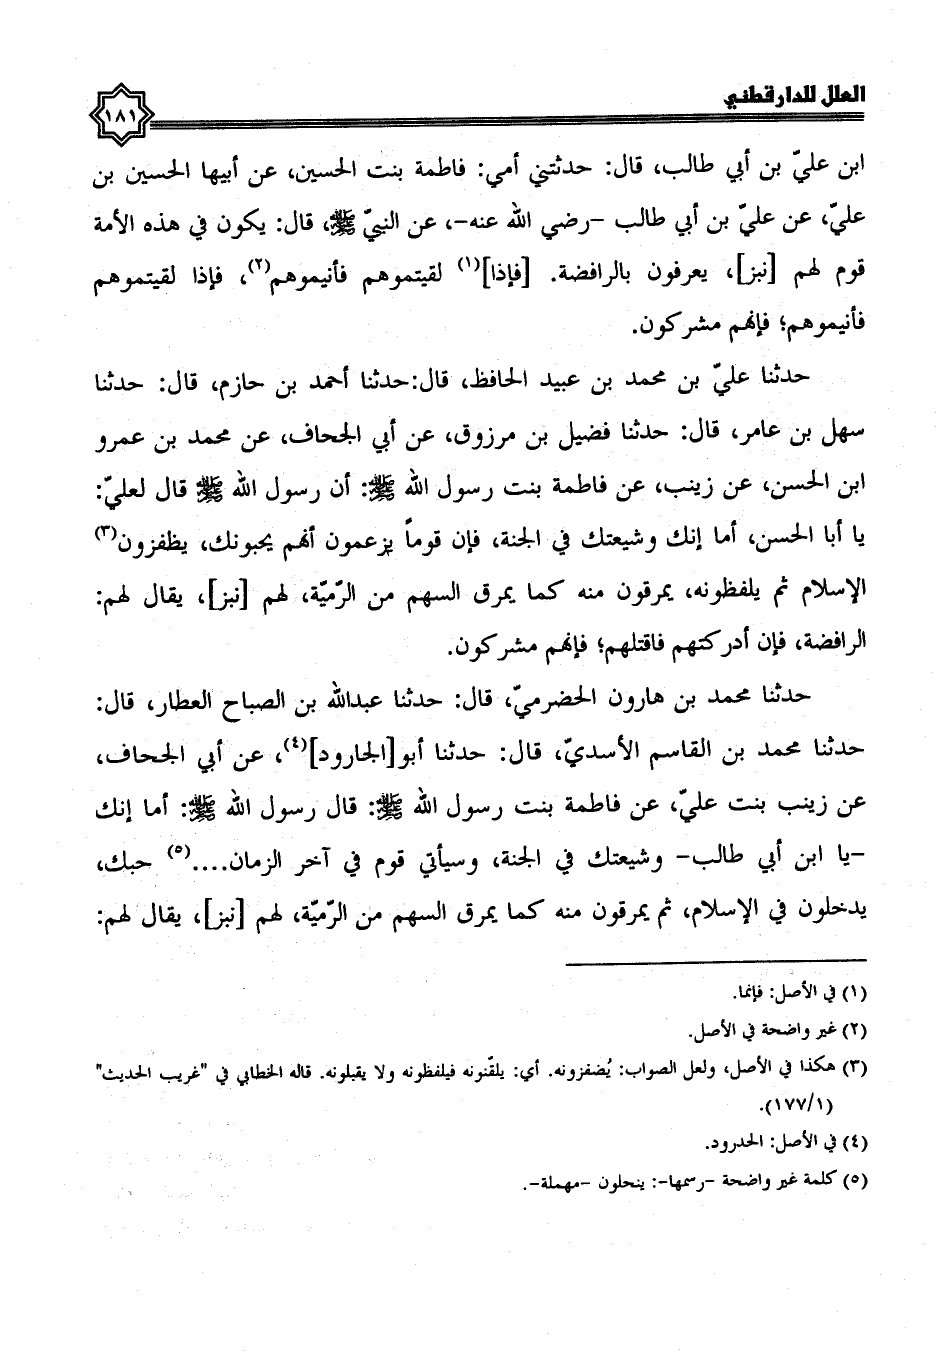 العلل للدارقطني
١٨١
ابن عليّ بن أبي طالب، قال: حدثتني أمي: فاطمة بنت الحسين، عن أبيها الحسين بن
عليّ، عن عليّ بن أبي طالب -رضي الله عنه-، عن النبيّ ﷺ، قال: يكون في هذه الأمة
قوم لهم [نبز]، يعرفون بالرافضة. [فإذا](١) لقيتموهم فأنيموهم(٢)، فإذا لقيتموهم
فأنيموهم؛ فإنهم مشركون.
حدثنا عليّ بن محمد بن عبيد الحافظ، قال:حدثنا أحمد بن حازم، قال: حدثنا
سهل بن عامر، قال: حدثنا فضيل بن مرزوق، عن أبي الجحاف، عن محمد بن عمرو
ابن الحسن، عن زينب، عن فاطمة بنت رسول الله ﷺ: أن رسول الله ﷺ قال لعليّ:
يا أبا الحسن، أما إنك وشيعتك في الجنة، فإن قوماً يزعمون أنهم يحبونك، يظفزون(٣)
الإسلام ثم يلفظونه، يمرقون منه كما يمرق السهم من الرّميّة، لهم [نبز]، يقال لهم:
الرافضة، فإن أدركتهم فاقتلهم؛ فإنهم مشركون.
حدثنا محمد بن هارون الحضرميّ، قال: حدثنا عبدالله بن الصباح العطار، قال:
حدثنا محمد بن القاسم الأسديّ، قال: حدثنا أبو[الجارود](٤)، عن أبي الجحاف،
عن زينب بنت عليّ، عن فاطمة بنت رسول الله ﷺ: قال رسول الله ﷺ: أما إنك
-يا ابن أبي طالب- وشيعتك في الجنة، وسيأتي قوم في آخر الزمان....(٥) حبك،
يدخلون في الإسلام، ثم يمرقون منه كما يمرق السهم من الرّميّة، لهم [نبز]، يقال لهم:
(١) في الأصل: فإنما.
(٢) غير واضحة في الأصل.
(٣) هكذا في الأصل، ولعل الصواب: يُضفزونه. أي: يلقّنونه فيلفظونه ولا يقبلونه. قاله الخطابي في "غريب الحديث"
(١٧٧/١).
(٤) في الأصل: الحدرود.
(٥) كلمة غير واضحة -رسمها-: ينحلون -مهملة-.